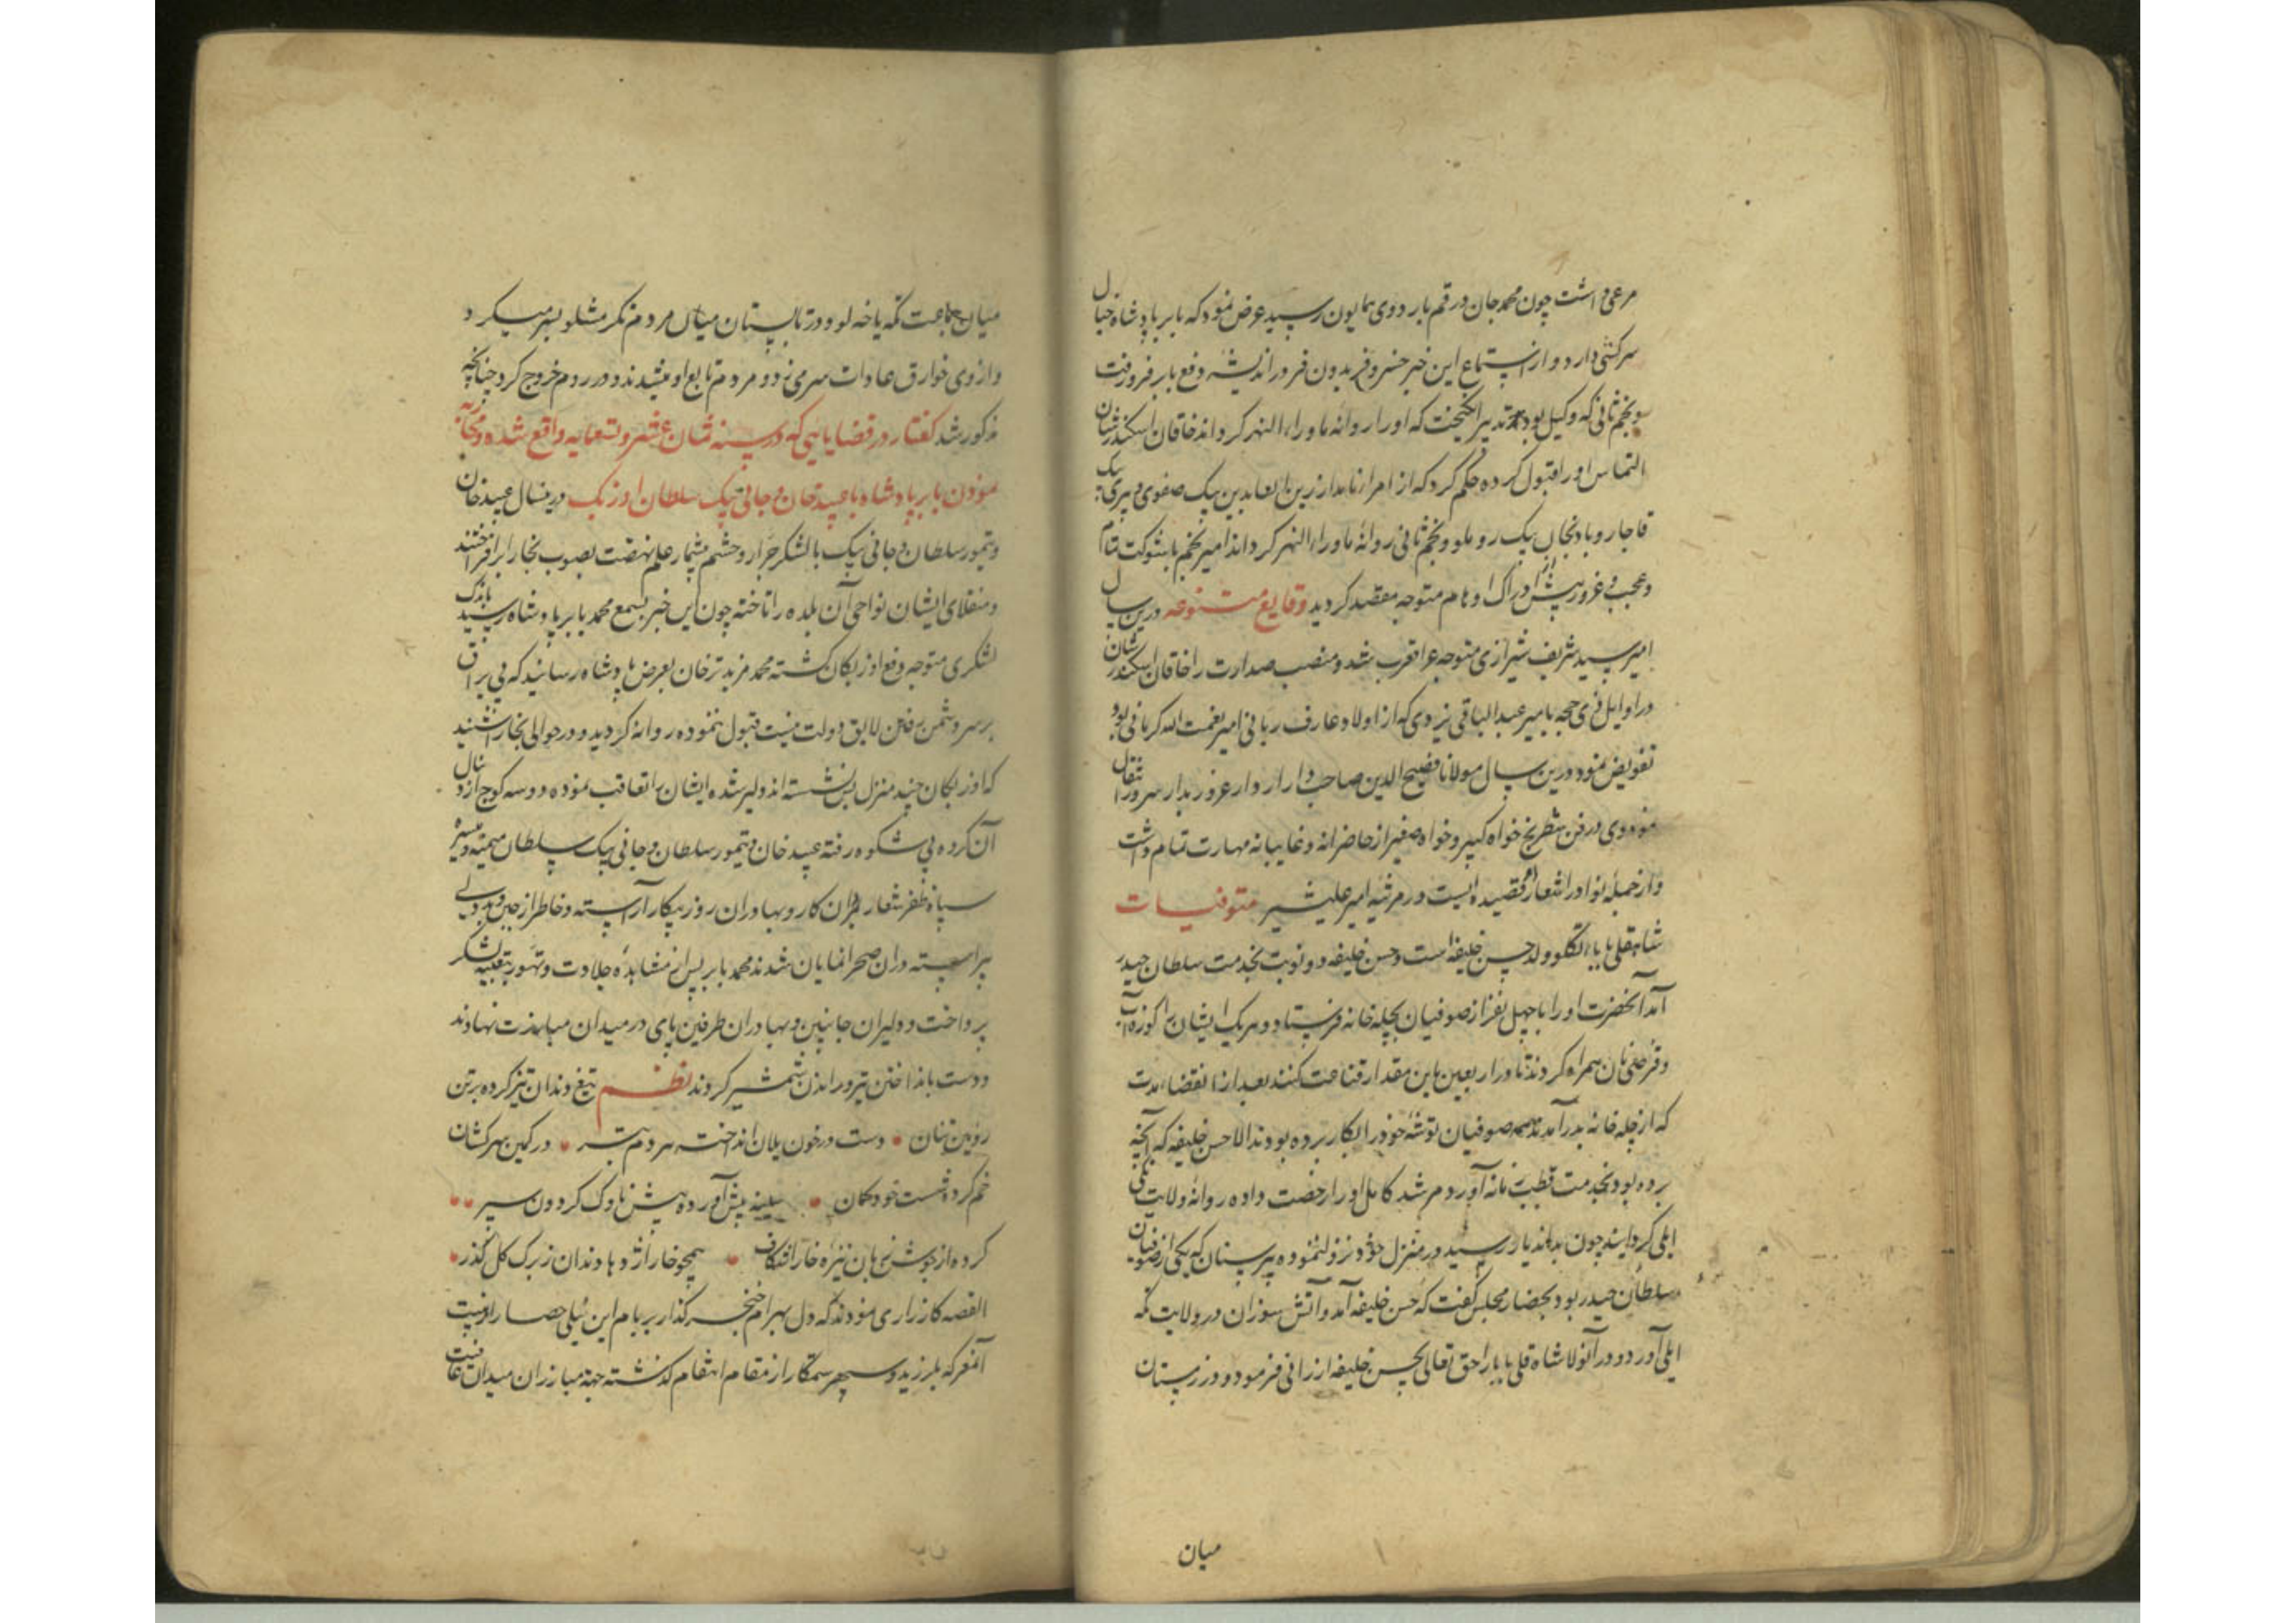 مرعی داشت چون محمد جان در قم باردوی همایون رسید عرض نمود که بابر پادشاه خیال
سرکشی دارد و از استماع این خبر خسرو فریدون فر در اندیشه دفع بابر فرو رفت
و نجم ثانی که وکیل بود تدبیر انگیخت که او را روانه ماوراء النهر کرداند خاقان اسکندر شان
التماس او را قبول کرده حکم کرد که از امراء نامدار زین العابدین بیک صفوی و پیری بیک
قاجار و بادنجان بیک روملو و نجم ثانی روانه ماوراء النهر کرداند امیر نجم با شوکت تمام
و عجب و غرور بیش از ادراک اوهام متوجه مقصد کردید وقایع متنوعه درین سال
امیر سید شریف شیرازی متوجه عراق عرب شد و منصب صدارت را خاقان اسکندر شان
در اوایل ذی حجه بامیر عبد الباقی یزدی که از اولاد عارف ربانی امیر نعمت الله کرمانی بود
تفویض نمود درین سال مولانا فصیح الدین صاحب دارا از دار غرور بدار سرور انتقال
نمود وی در فن شطرنج خواه کبیر و خواه صغیر از حاضرانه و غایبانه مهارت تمام داشت
و از جمله نوادر اشعار او قصیده ایست در مرثیه امیر علیشیر متوفیات
شاهقلی بابا تکلو ولد حسن خلیفه است و حسن خلیفه دو نوبت بخدمت سلطان حیدر
آمد آنحضرت او را با چهل نفر از صوفیان بچله خانه فرستاد و هر یک ایشان را کوزه آب
و قرصی نان همراه کردند تا در اربعین باین مقدار قناعت کنند بعد از انقضاء مدت
که از چله خانه بدر آمدند همه صوفیان توشه خود را بکار برده بودند الا حسن خلیفه که آنچه
برده بود بخدمت قطب زمانه آورد مرشد کامل او را رخصت داده روانه ولایت تکه
ایلی کردانید چون بداندیار رسید در منزل خود نزول نموده پیر سنان که یکی از صوفیان
سلطان حیدر بود بحضار مجلس گفت که حسن خلیفه آمد و آتش سوزان در ولایت تکه
ایلی آورد و در آنولا شاه قلی بابا را حق تعالی بحسن خلیفه ارزانی فرمود و در زمستان
میان
میان جماعت تکه یاخه لو و در تابستان میان مردم تکر مشلو بسر میکرد
و از وی خوارق عادات سر می زد و مردم تابع او میشدند و در روم خروج کرد چنانچه
مذکور شد گفتار در قضایایی که در سنه ثمان عشر و تسعمایه واقع شده و محاربه
نمودن بابر پادشاه با عبید خان و جانی بیک سلطان اوزبک درینسال عبید خان
و تیمور سلطان و جانی بیک با لشکر جرار و حشم بیشمار علم نهضت بصوب بخارا برافراختند
و منقلای ایشان نواحی آن بلده را تاخته چون این خبر بسمع محمد بابر پادشاه رسید باندک
لشکری متوجه دفع اوزبکان کشته محمد مزید ترخان بعرض پادشاه رسانید که بی یراق
بر سر دشمن رفتن لایق دولت نیست قبول ننموده روانه کردید و در حوالی بخارا شنید
که اوزبکان چند منزل پس نشسته اند دلیر شده ایشان را تعاقب نموده دو سه کوچ از دنبال
آن کروه بی شکوه رفته عبید خان و تیمور سلطان و جانی بیک سلطان میمنه و میسره
سپاه ظفر شعار بمران کار و بهادران روز پیکار آراسته و خاطر از جبن و بد دلی
پیراسته در آن صحرا نمایان شدند محمد بابر پس از مشاهده جلادت و تهور بتعبیه لشکر
پرداخت و دلیران جانبین و بهادران طرفین پای در میدان مبارزت نهادند
و دست بانداختن تیر و راندن شمشیر کردند نظم تیغ دندان تیز کرده بر تن
رویین تنان • دست در خون یلان انداخت هر دم تبر • در کمین سرکشان
خم کرده شست خود کمان • سینه پیش آورده پیش ناوک کردون سپر ••
کرده از جوشن زبان نیزه خارا شکاف • همچو خار اژدها دندان ز برک کل گذر •
القصه کارزاری نمودند که دل بهرام خنجر گذار بر بام این نیلی حصار از هیبت
آنمعرکه بلرزید و سپهر ستمکار از مقام انتقام گذشته جهة مبارزان میدان عافیت